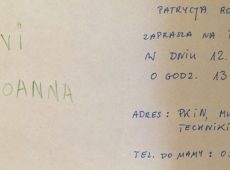 NI
OANNA
PATRYCJA RO
ZAPRASZA NA
W DNIU 12.
O GODZ. 13
ADRES : PKIN, MU
TECHNIKI
TEL. DO MAMY : 0.